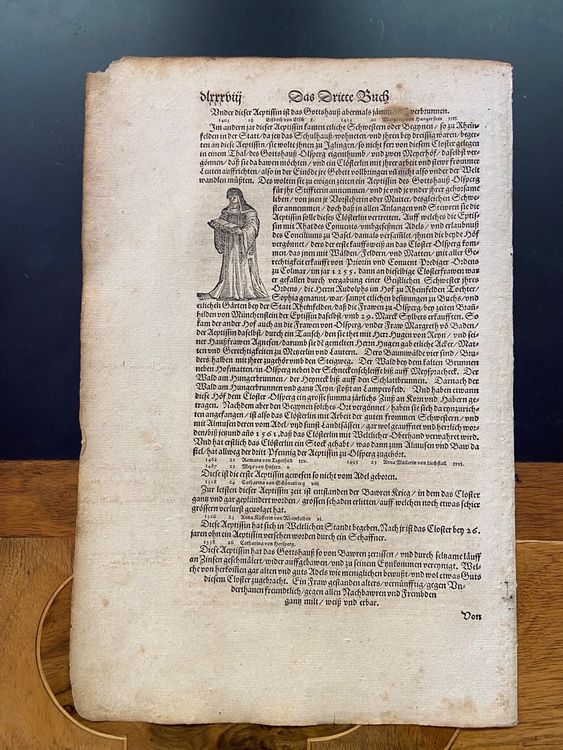 dlxxxviij Das Dritte Buch
Vnder dieser Aeptissin ist das Gottshauß abermals verbrunnen.
1403 19 Elßbeth von Eisch x. 1414 20 Margreth von Hungerstein xvj.
Im andern jar dieser Aeptissin kamen etliche Schwestern oder Begynen / so zu Rhein-
felden in der Statt / da jetz das Schulhauß / wohneten / vnd jhren bey dreissig waren / beger-
ten an diese Aeptissin / sie wolt jhnen zu Iglingen / so nicht fer von diesem Closter gelegen
in einem Thal / des Gottshauß Olsperg eigenthumb / vnd zwen Meyerhöf / daselbst ver-
gönnen / daß sie da bawen möchten / vnd ein Clösterlin mit jhrer arbeit vnd stewr frommer
Leuten auffrichten / also in der Einöde jre Gebett vollbringen vñ nicht also vnder der Welt
wandlen müßten. Des wolten sie zu ewigen zeiten ein Aeptissin des Gottshauß Olsperg
für jhr Stiffterin annemmen / vnd je vnd je vnder jhrer gehorsame
leben / von jnen je Vorsteherin oder Mutter / desgleichen Schwe-
ster annemmen / doch daß in allen Anlangen vnd Stewren sie die
Aeptissin solle dieses Clösterlin vertretten. Auff welches die Eptis-
sin mit Rhat des Conuents / vmbgeseßnen Adels / vnd erlaubnuß
des Conciliums zu Basel / damals versamlet / jhnen die beyde Höf
vergönnet / dero der erste kauffsweiß an das Closter Olsperg kom-
men / das jnen mit Wälden / Feldern / vnd Matten / mit aller Ge-
rechtigkeit erkaufft von Priorin vnd Conuent Prediger Ordens
zu Colmar / im jar 1255. dann an dieselbige Closterfrawen war
er gefallen durch vergabung einer Geistlichen Schwester jhres
Ordens / die Herrn Rudolphs im Hof zu Rheinfelden Tochter /
Sophia genannt / war / sampt etlichen besitzungen zu Buchs / vnd
etlichen Gärten bey der Statt Rheinfelden / daß die Frawen zu Olsperg / bey zeiten Ban-
halden von Münchenstein der Eptissin daselbst / vmb 29. Marck Sylbers erkaufften. So
kam der ander Hof auch an die Frawen von Olsperg / vnder Fraw Margreth vō Baden /
der Aeptissin daselbst / durch ein Tausch / den sie thet mit Herr Hugen von Reyn / vnd sei-
ner Haußfrawen Agnesen / darumb sie dē gemelten Herrn Hugen gab etliche Acker / Mat-
ten vnd Gerechtigkeiten zu Metzerlin vnd Lautern. Dero Baumwälde vier sind / Bru-
ders halden mit jhrer zugehör vmb den Steigweg. Der Wald bey dem kalten Brunnen
neben Hofmatten / in Olsperg neben der Schneckenschleiffe biß auff Meysprachek. Der
Wald am Hungerbrunnen / der Heyneck biß auff den Schlattbrunnen. Darnach der
Wald am Hungerbrunnen vnd gantz Reyn / stoßt an Lampersfeld. Vnd haben etwann
diese Höf dem Closter Olsperg ein grosse summa järliches Zinß an Korn vnd Habern ge-
tragen. Nachdem aber den Begynen solches Ort vergönnet / haben sie sich da eynzurich-
ten angefangen / ist also das Clösterlin mit Arbeit der guten frommen Schwestern / vnd
mit Almusen deren vom Adel / vnd sunst Landsässen / gar wol geauffnet vnd herrlich wor-
den / biß jetz vnd año 1561. daß das Clösterlin mit Weltlicher Oberhand verwahrt wird.
Vnd hat erstlich das Clösterlin ein Stock gehabt / was dann zum Almusen vnd Baw da
fiel / hat allweg der dritt Pfennig der Aeptissin zu Olsperg zugehört.
1462 21 Romana von Tegerfeld xxv. 1495 23 Anna Müllerin von Liechstall xxvj.
1487 22 Metz von Hüsern v
Diese ist die erste Aeptissin gewesen so nicht vom Adel geboren.
1518 24 Catharina von Schönenberg viij.
Zur letsten dieser Aeptissin zeit ist entstanden der Bawren Krieg / in dem das Closter
gantz vnd gar geplündert worden / grossen schaden erlitten / auff welchen noch etwas schier
grössern verlurst gevolget hat.
1526 25 Anna Küfferin von Rheinfelden vj.
Diese Aeptissin hat sich in Weltlichen Standt begeben. Nach jr ist das Closter bey 26.
jaren ohn ein Aeptissin versehen worden durch ein Schaffner.
1558 26 Catharina von Hersperg.
Diese Aeptissin hat das Gottshauß so von Bawren zerrissen / vnd durch seltzame läuff
an Zinsen geschmälert / wider auffgebawen / vnd zu seinem Eynkommen vereynigt. Wel-
che von herkom̃en gar alten vnd guts Adels wie menglichen bewußt / vnd wol etwas Guts
diesem Closter zugebracht. Ein Fraw gestanden alters / vernünfftig / gegen Vn-
derthanen freundtlich / gegen allen Nachbawren vnd Frembden
gantz milt / weiß vnd erbar.
Von